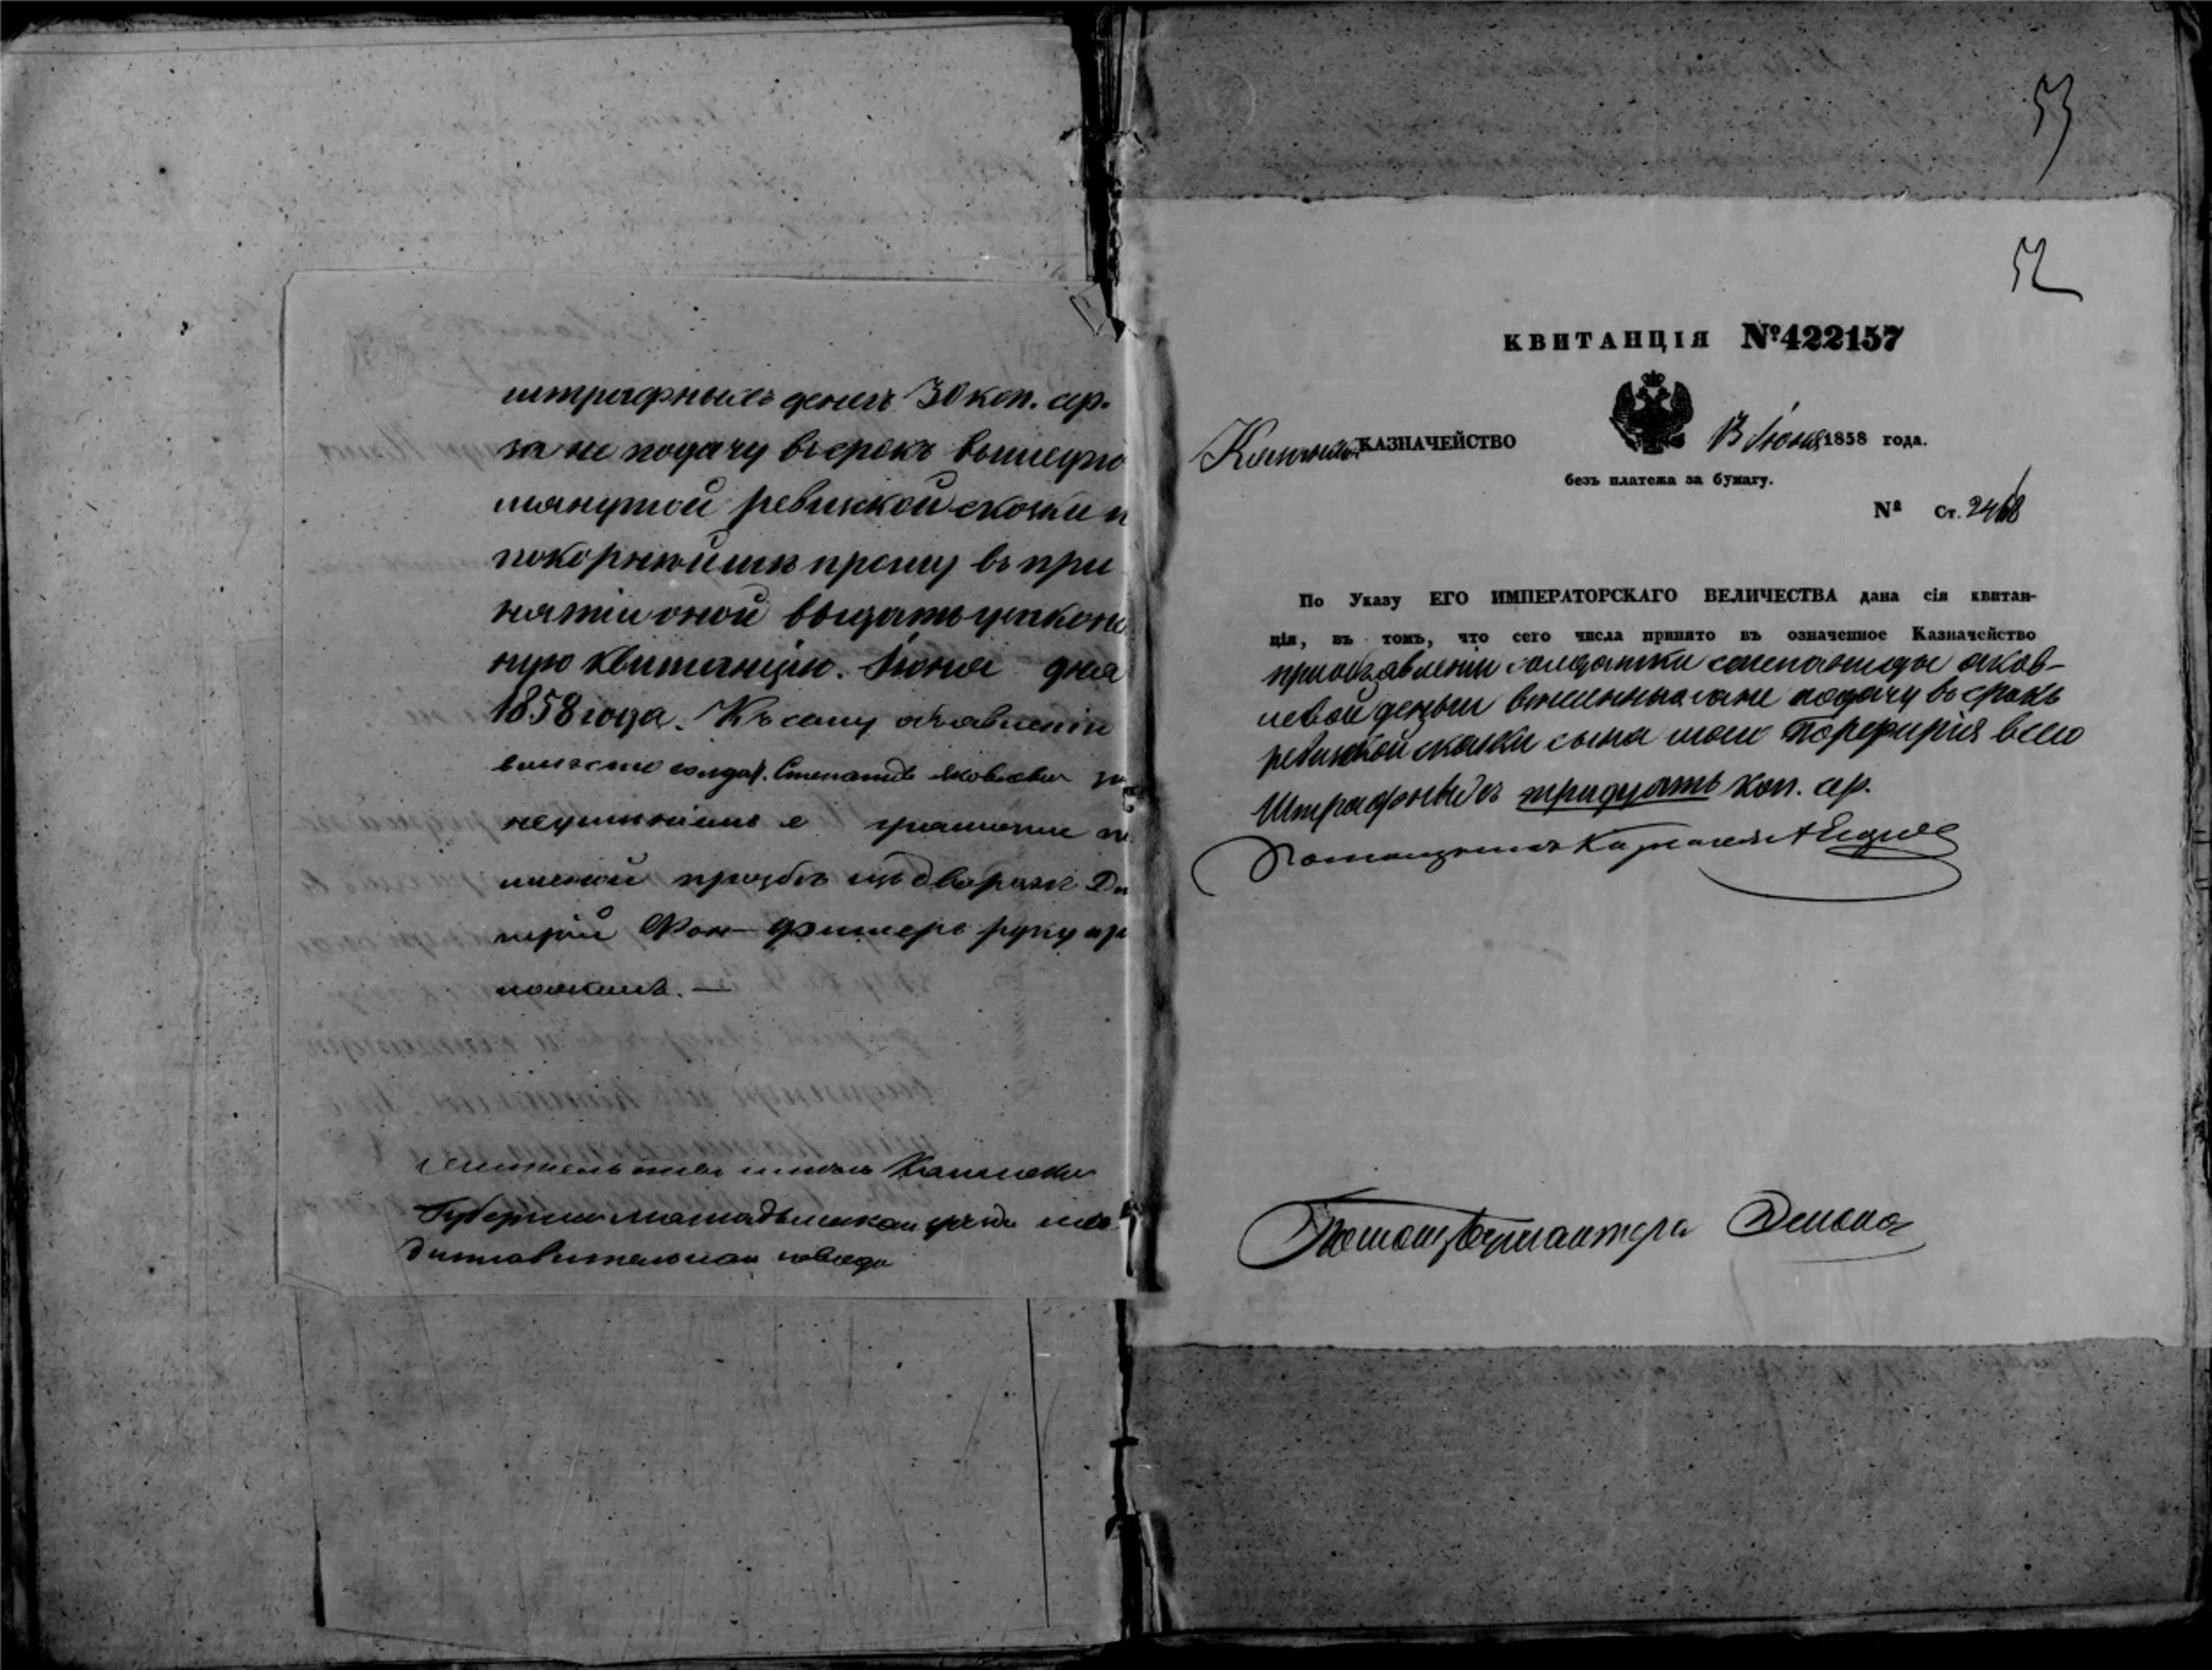 штрафныхъ денегъ 30 коп. сер.
за не подачу въ срокъ вышеупо
мянутой ревизской сказки и
покорнѣйше прошу въ при
нятіи оной выдать узакон
ную квитанцію. Іюня дня
1858 года. Къ сему объявленію
вмѣсто солдат. Степаниды Яковлевой за
неумѣніемъ грамоте
личной прозбѣ изъ дворянъ
Фон-Фишеръ руку пр
ложилъ. —
Жительство имѣю
Губерніи уѣзда
53
52
КВИТАНЦІЯ №422157
КАЗНАЧЕЙСТВО 13 Іюня 1858 года.
безъ платежа за бумагу.
№ Ст. 2468
По Указу ЕГО ИМПЕРАТОРСКАГО ВЕЛИЧЕСТВА дана сія квитан-
ція, въ томъ, что сего числа принято въ означенное Казначейство
при объявленіи солдатки Степаниды Яков-
левой деньги за не подачу въ срокъ
ревизской сказки сына Порфирія всего
Штрафныхъ тридцать коп. сер.
Помощникъ Казначея
Помощ Бухгалтера